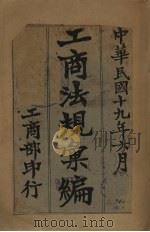 中華民國十九年 月
工商法規彙編
工商部印行